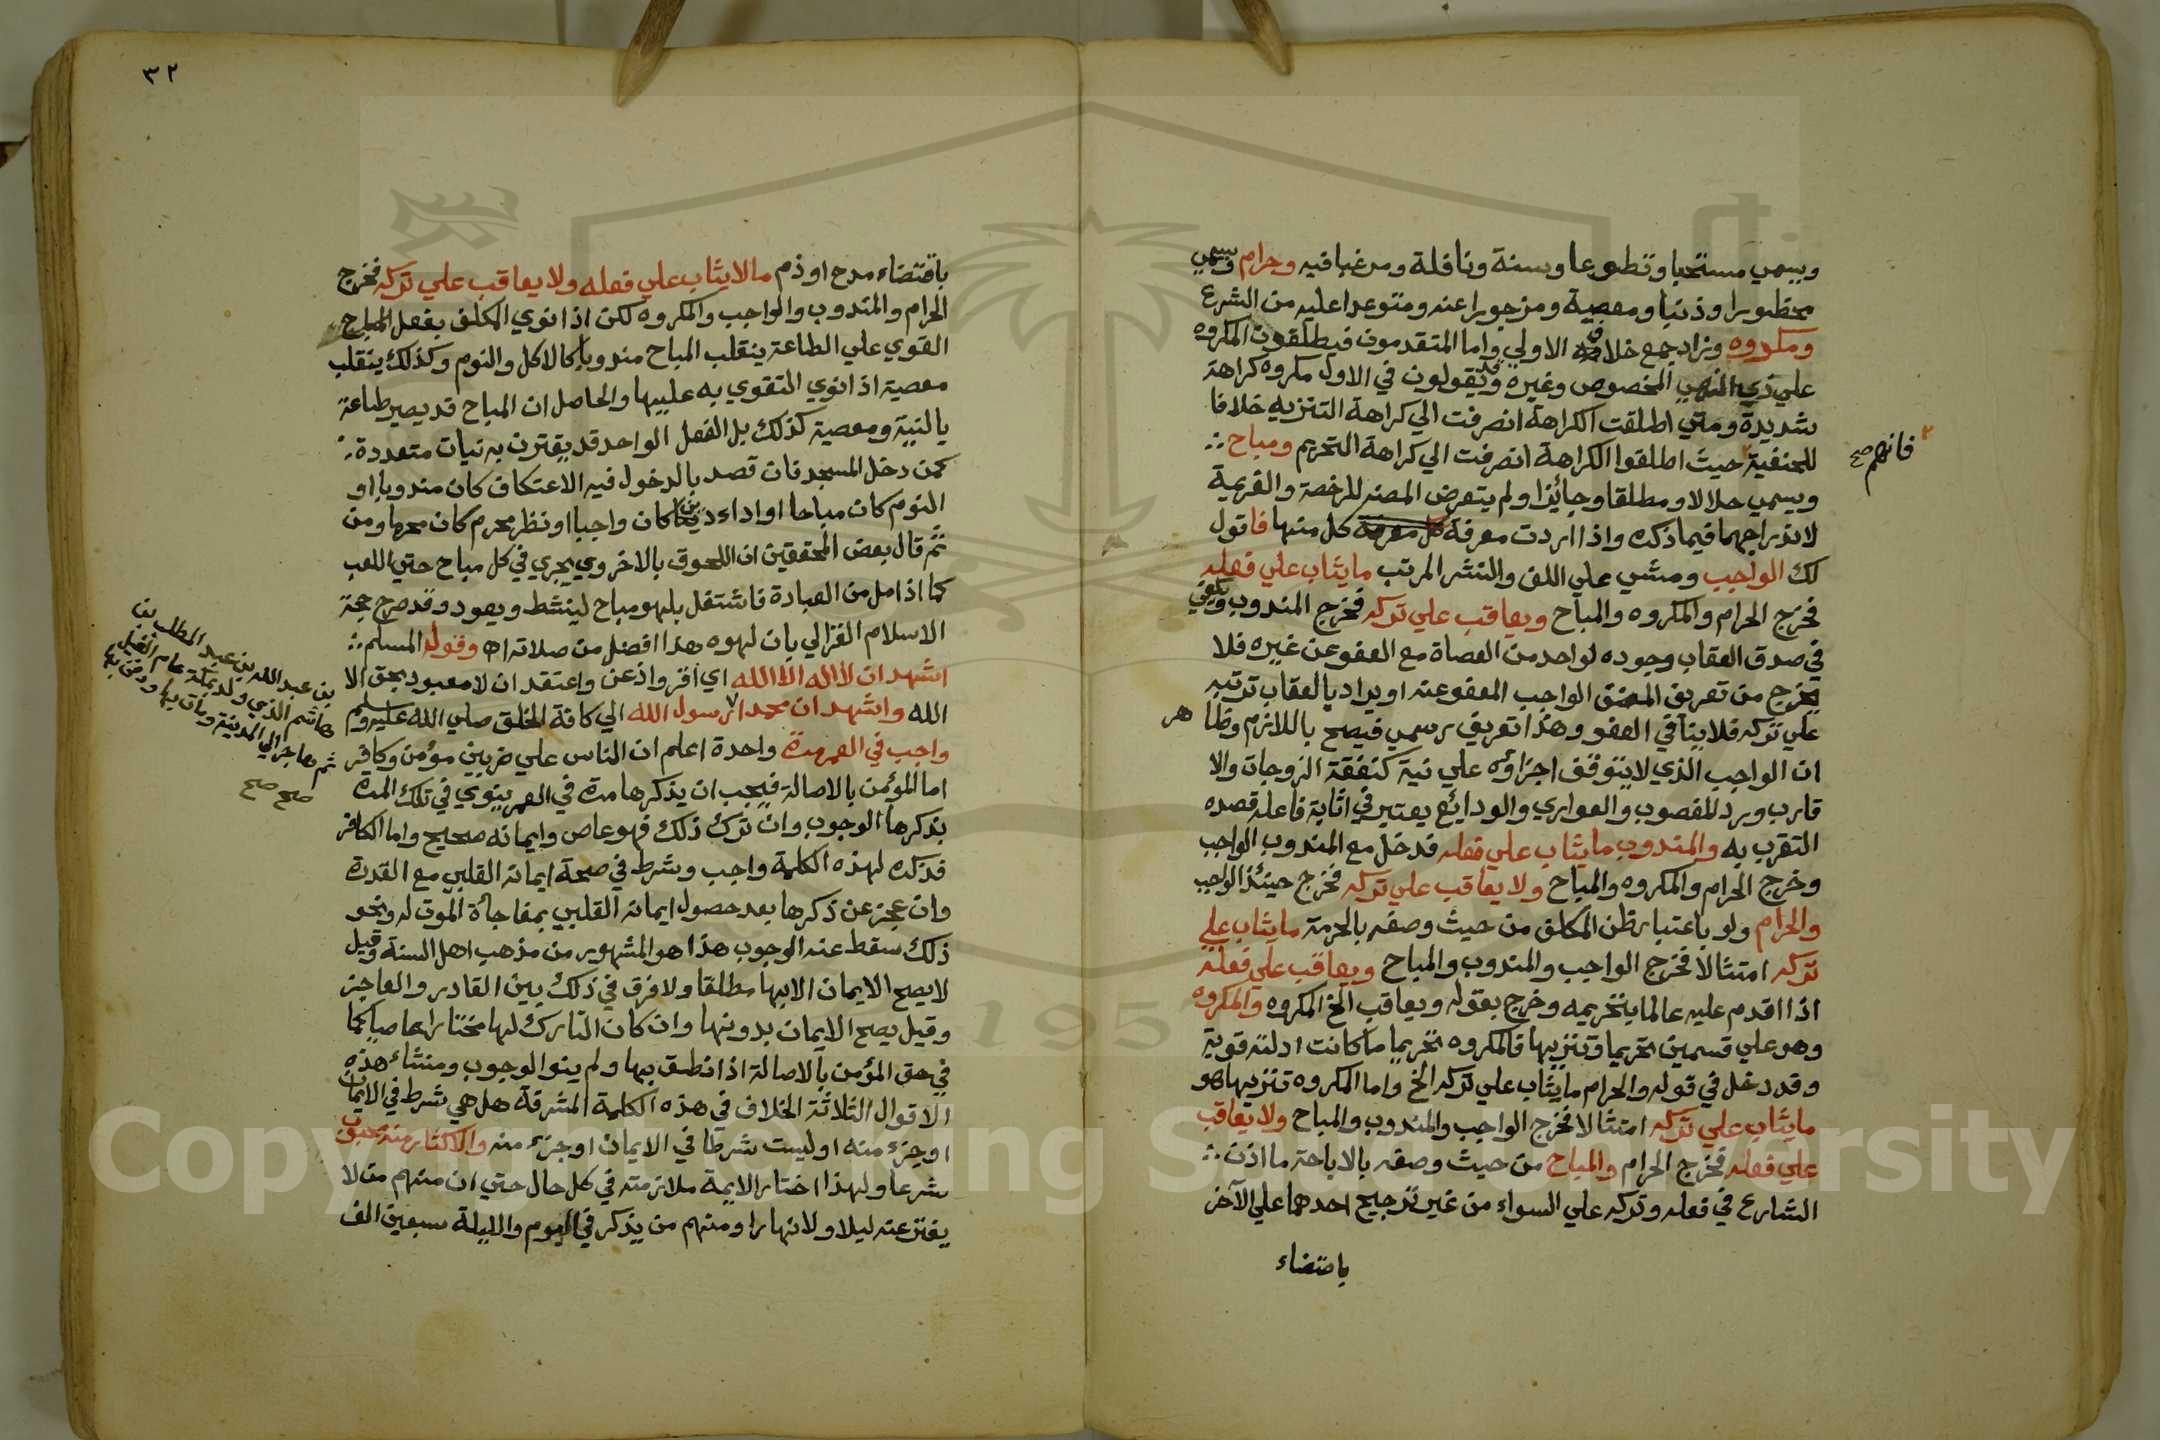 ويسمي مستحبا وتطوعا وسنة ونافلة ومرغبا فيه وحرام ويسمي
محظورا وذنبا ومعصية ومزجورا عنه ومتوعدا عليه من الشرع
ومكروه وزاد جمع خلاف الاولي واما المتقدمون فيطلقون المكروه
علي ذي النهي المخصوص وغيره وقد يقولون في الاول مكروه كراهة
شديدة ومتي اطلقت الكراهة انصرفت الي كراهة التنزيه خلافا
للحنفية حيث اطلقوا الكراهة انصرفت الي كراهة التحريم ومباح
فانهم صح
ويسمي حلالا ومطلقا وجائزا ولم يتعرض المصنف للرخصة والعزيمة
لاندراجهما فيما ذكره واذا اردت معرفة كل معرفة كل منها فاقول
لك الواجب ومشي علي اللف والنشر المرتب ما يثاب علي فعله
فخرج الحرام والمكروه والمباح ويعاقب علي تركه فخرج المندوب ويكفي
في صدق العقاب وجوده لواحد من العصاة مع العفو عن غيره فلا
يخرج من تعريف المصنف الواجب المعفو عنه او يراد بالعقاب ترتبه
علي تركه فلا ينافي العفو وهذا تعريف رسمي فيصح باللازم وظاهر
ان الواجب الذي لا يتوقف اجزاؤه علي نية كنفقة الزوجات والا
قارب ورد المغصوب والعواري والودائع يعتبر في اثابة فاعله قصده
التقرب به والمندوب ما يثاب علي فعله فدخل مع المندوب الواجب
وخرج الحرام والمكروه والمباح ولا يعاقب علي تركه فخرج حينئذ الواجب
والحرام ولو باعتبار ظن المكلف من حيث وصفه بالحرمة ما يثاب علي
تركه امتثالا فخرج الواجب والمندوب والمباح ويعاقب علي فعله
اذا اقدم عليه عالما بتحريمه وخرج بقوله ويعاقب الخ المكروه والمكروه
وهو علي قسمين تحريما وتنزيها فالمكروه تحريما ما كانت ادلته قوية
وقد دخل في قوله والحرام ما يثاب علي تركه الخ واما المكروه تنزيها هو
ما يثاب علي تركه امتثالا فخرج الواجب والمندوب والمباح ولا يعاقب
علي فعله فخرج الحرام والمباح من حيث وصفه بالاباحة ما اذن
الشارع في فعله وتركه علي السواء من غير ترجيح احدهما علي الآخر
باقتضاء
٣٢
باقتضاء مدح او ذم ما لا يثاب علي فعله ولا يعاقب علي تركه فخرج
الحرام والمندوب والواجب والمكروه لكن اذا نوي المكلف بفعل المباح
القوي علي الطاعة ينقلب المباح مندوبا كالاكل والنوم وكذلك ينقلب
معصية اذا نوي التقوي به عليها والحاصل ان المباح قد يصير طاعة
بالنية ومعصية كذلك بل الفعل الواحد قد يقترن به نيات متعددة
كمن دخل المسجد فان قصد بالدخول فيه الاعتكاف كان مندوبا او
النوم كان مباحا او اداء دين كان واجبا او نظر محرم كان محرما ومن
ثم قال بعض المحققين ان اللحوق بالاخروي يجري في كل مباح حتي اللعب
كما اذا مل من العبادة فاشتغل بلهو مباح لينشط ويعود وقد صرح حجة
الاسلام الغزالي بان لهوه هذا افضل من صلاته اه وقول المسلم
اشهد ان لا اله الا الله اي اقر واذعن واعتقد ان لا معبود بحق الا
الله واشهد ان محمدا رسول الله الي كافة الخلق صلي الله عليه وسلم
بن عبد الله بن عبد المطلب بن
هاشم الذي ولد بمكة عام الفيل
ثم هاجر الي المدينة ومات بها ودفن بها
صح صح
واجب في العمر مرة واحدة اعلم ان الناس علي ضربين مؤمن وكافر
اما المؤمن بالاصالة فيجب ان يذكرها مرة في العمر ينوي في تلك المرة
بذكرها الوجوب وان ترك ذلك فهو عاص وايمانه صحيح واما الكافر
فذكره لهذه الكلمة واجب وشرط في صحة ايمانه القلبي مع القدرة
وان عجز عن ذكرها بعد حصول ايمانه القلبي بمفاجأة الموت له ونحو
ذلك سقط عنه الوجوب هذا هو المشهور من مذهب اهل السنة وقيل
لا يصح الايمان الا بها مطلقا ولا فرق في ذلك بين القادر والعاجز
وقيل يصح الايمان بدونها وان كان التارك لها مختارا عاصيا كما
في حق المؤمن بالاصالة اذا نطق بها ولم ينو الوجوب ومنشاء هذه
الاقوال الثلاثة الخلاف في هذه الكلمة المشرفة هل هي شرط في الايمان
او جزء منه او ليست شرطا في الايمان او جزء منه والاكثار منه محبوب
شرعا ولهذا اختار الايمة ملازمته في كل حال حتي ان منهم من لا
يفتر عنه ليلا ولا نهارا ومنهم من يذكر في اليوم والليلة سبعين الف
1957
Copyright © King Saud University